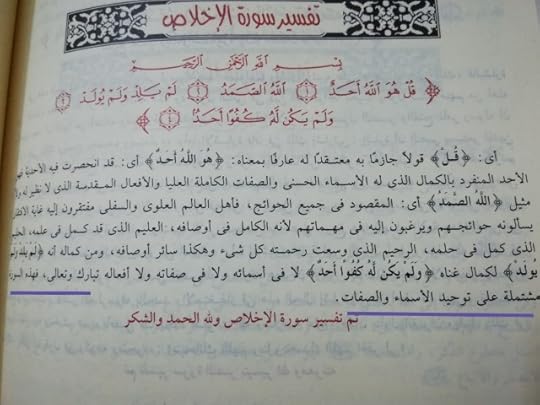 تفسير سورة الإخلاص
بِسْمِ اللَّهِ الرَّحْمَنِ الرَّحِيمِ
﴿ قُلْ هُوَ اللَّهُ أَحَدٌ ﴿١﴾ اللَّهُ الصَّمَدُ ﴿٢﴾ لَمْ يَلِدْ وَلَمْ يُولَدْ ﴿٣﴾
وَلَمْ يَكُن لَّهُ كُفُوًا أَحَدٌ ﴿٤﴾ ﴾
أى: ﴿قُلْ﴾ قولاً جازمًا به معتقدًا له عارفًا بمعناه: ﴿هُوَ اللَّهُ أَحَدٌ﴾ أى: قد انحصرت فيه الأحدية فهو
الأحد المنفرد بالكمال الذى له الأسماء الحسنى والصفات الكاملة العليا والأفعال المقدسة الذى لا نظير له ولا
مثيل ﴿اللَّهُ الصَّمَدُ﴾ أى: المقصود فى جميع الحوائج، فأهل العالم العلوى والسفلى مفتقرون إليه غاية الافتقار
يسألونه حوائجهم ويرغبون إليه فى مهماتهم لأنه الكامل فى أوصافه، العليم الذى قد كمل فى علمه، الحليم
الذى كمل فى حلمه، الرحيم الذى وسعت رحمته كل شىء وهكذا سائر أوصافه، ومن كماله أنه ﴿لَمْ يَلِدْ وَلَمْ
يُولَدْ﴾ لكمال غناه ﴿وَلَمْ يَكُن لَّهُ كُفُوًا أَحَدٌ﴾ لا فى أسمائه ولا فى صفاته ولا أفعاله تبارك وتعالى، فهذه السورة
مشتملة على توحيد الأسماء والصفات.
تم تفسير سورة الإخلاص ولله الحمد والشكر